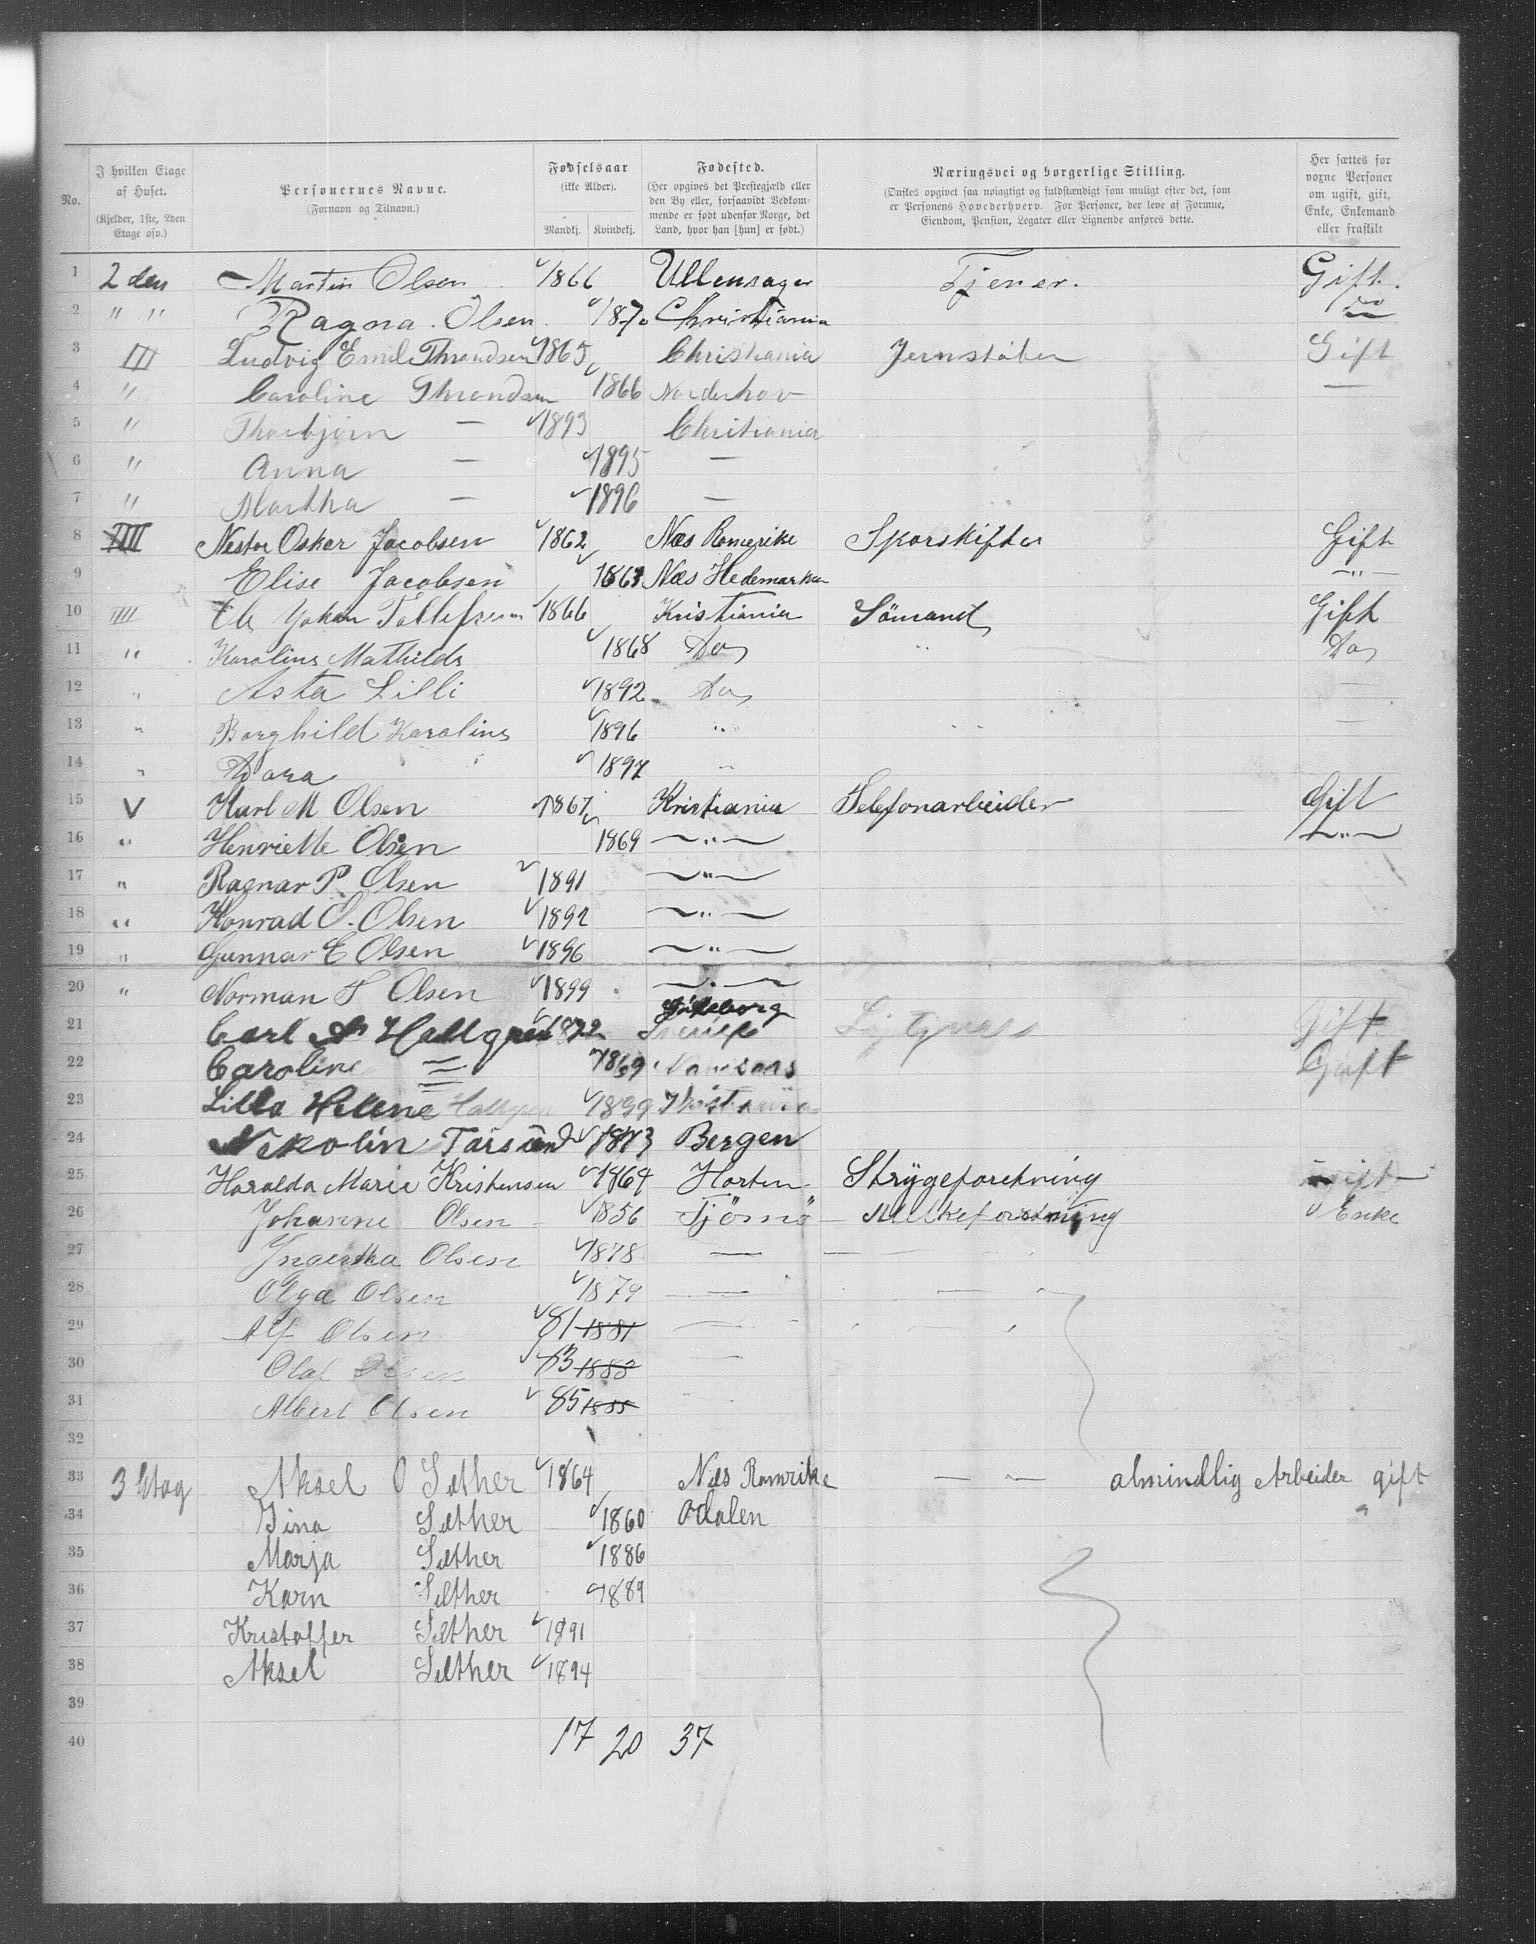 No.
I hvilken Etage af Huset.
(Kjelder, 1ste, 2den Etage osv.)
Personernes Navne.
(Fornavn og Tilnavn.)
Fødselsaar
(ikke Alder).
Mandkj. Kvindekj.
Fødested.
(Her opgives det Prestegjæld eller den By eller, forsaavidt Bedkommende er født udenfor Norge, det Land, hvor han [hun] er født.)
Næringsvei og borgerlige Stilling.
(Ønskes opgivet saa nøiagtigt og fuldstændigt som muligt efter det, som er Personens Hovederhverv. For Personer, der leve af Formue, Eiendom, Pension, Legater eller Lignende anføres dette.
Her sættes for voxne Personer om ugift, gift, Enke, Enkemand eller fraskilt
1 2 den Martin Olsen 1866 Ullensager Tjener. Gift.
2 " " Ragna Olsen 1870 Christiania do
3 III Ludvig Emil Throndsen 1865 Christiania Jernstøber Gift
4 " Caroline Throndsen 1866 Norderhov —
5 " Thorbjørn — 1893 Christiania
6 " Anna — 1895 —
7 " Martha — 1896 —
8 IIII Nestor Oskar Jacobsen 1862 Næs Romerike Sporskifter Gift
9 Elise Jacobsen 1863 Næs Hedemarken — " —
10 IIII Johan Tollefsen 1866 Kristiania Sömand Gift
11 " Karoline Mathilde 1868 Do Do
12 " Asta Lilli 1892 Do —
13 " Borghild Karoline 1896 " —
14 " Dora 1897 "
15 V Karl M Olsen 1867 Kristiania Telefonarbeider Gift
16 " Henriette Olsen 1869 — " — — " —
17 " Ragnar P Olsen 1891 — " —
18 " Konrad O. Olsen 1892 — " —
19 " Gunnar E Olsen 1896 — " —
20 " Norman S Olsen 1899 — " —
Göteborg
21 Carl A Hallgren 1872 Sverige Gift
22 Caroline = 1869 Namsoas Gift
23 Lilla Helene Hallgren 1899 Kristiania
24 Nikolin 1873 Bergen
25 Haralda Marie Kristensen 1864 Horten Strygeforetning ugift
26 Johanne Olsen 1856 Tjömö Melkeforetning Enke
27 Ingertha Olsen 1878 — —
28 Olga Olsen 1879 — —
29 Alf Olsen 81 1881 — —
30 Olaf Olsen 83 1883 —
31 Albert Olsen 85 1885
32
33 3 Etag Aksel O Sæther 1864 Næs Romrike — — almindlig Arbeider gift
34 Gina Sæther 1860 Odalen "
35 Marja Sæther 1886
36 Karn Sæther 1889
37 Kristoffer Sæther 1891
38 Aksel Sæther 1894
39
40 17 20 37